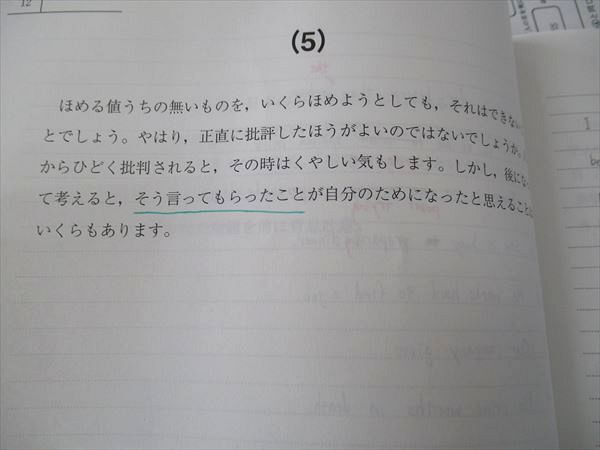 12
(5)
ほめる値うちの無いものを，いくらほめようとしても，それはできない
とでしょう。やはり，正直に批評したほうがよいのではないでしょうか。
からひどく批判されると，その時はくやしい気もします。しかし，後になっ
て考えると，そう言ってもらったことが自分のためになったと思えること
いくらもあります。